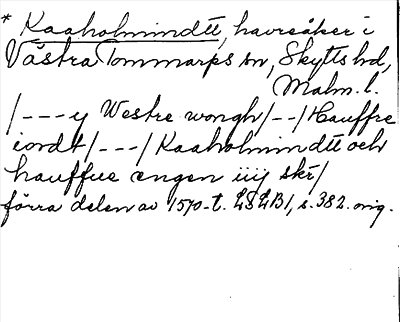 * Kaaholmindtt, havreåker i
Västra Tommarps sn, Skytts hd,
Malm. l.
/---y Westre wongh/--/Hauffre
iordt/---/Kaaholmindtt och
hauffue engen iiij skr/
förra delen av 1570-t. LSLB1, s. 382. orig.